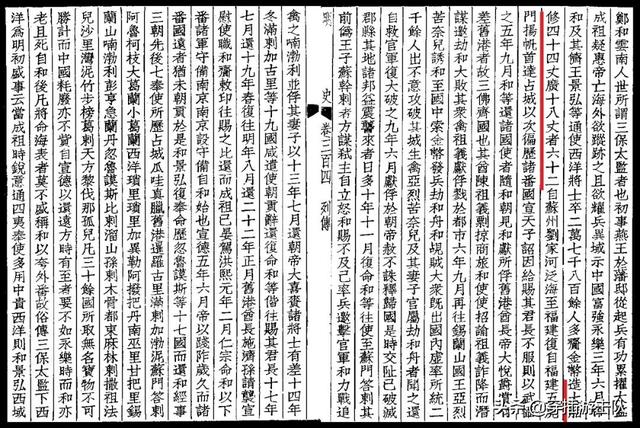 鄭和雲南人世所謂三保太監者也初事燕王於藩邸從起兵有功累擢太監
成祖疑惠帝亡海外欲蹤跡之且欲耀兵異域示中國富強永樂三年六月命
和及其儕王景弘等通使西洋將士卒二萬七千八百餘人多齎金幣造大舶
修四十四丈廣十八丈者六十二自蘇州劉家河泛海至福建復自福建五虎
門揚帆首達占城以次徧歷諸番國宣天子詔因給賜其君長不服則以武懾
之五年九月和等還諸國使者隨和朝見和獻所俘舊港酋長帝大悅爵賞有
差舊港者故三佛齊國也其酋陳祖義剽掠商旅和使使招諭祖義詐降而潛
謀邀劫和大敗其衆擒祖義獻俘戮於都市六年九月再往錫蘭山國王亞烈
苦柰兒誘和至國中索金幣發兵劫和舟和覘賊大衆既出國內虛率所統二
千餘人出不意攻破其城生擒亞烈苦柰兒及其妻子官屬劫和舟者聞之還
自救官軍復大破之九年六月獻俘於朝帝赦不誅釋歸國是時交阯已破滅
郡縣其地諸邦益震讋來者日多十年十一月復命和等往使至蘇門答剌其
前偽王子蘇幹剌者方謀弒主自立怒和賜不及己率兵邀擊官軍和力戰追
史 卷三百四 列傳
禽之喃渤利並俘其妻子以十三年七月還朝帝大喜賚諸將士有差十四年
冬滿剌加古里等十九國咸遣使朝貢辭還復命和等偕往賜其君長十七年
七月還十九年春復往明年八月還二十二年正月舊港酋長施濟孫請襲宣
慰使職和齎敕印往賜之比還而成祖已晏駕洪熙元年二月仁宗命和以下
番諸軍守備南京南京設守備自和始也宣德五年六月帝以踐阼歲久而諸
番國遠者猶未朝貢於是和景弘復奉命歷忽魯謨斯等十七國而還和經事
三朝先後七奉使所歷占城爪哇真臘舊港暹羅古里滿剌加渤泥蘇門答剌
阿魯柯枝大葛蘭小葛蘭西洋瑣里瑣里加異勒阿撥把丹南巫里甘把里錫
蘭山喃渤利彭亨急蘭丹忽魯謨斯比剌溜山孫剌木骨都束麻林剌撒祖法
兒沙里灣泥竹步榜葛剌天方黎伐那孤兒凡三十餘國所取無名寶物不可
勝計而中國耗廢亦不貲自宣德以還遠方時有至者要不如永樂時而和亦
老且死自和後凡將命海表者莫不盛稱和以夸外番故俗傳三保太監下西
洋為明初盛事云當成祖時銳意通四夷奉使多用中貴西洋則和景弘西域